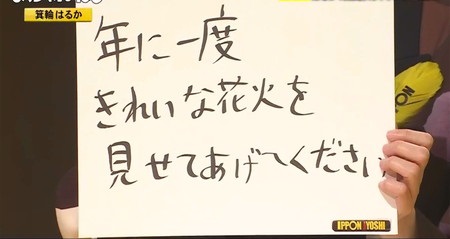 箕輪はるか
年に一度
きれいな花火を
見せてあげてください
IPPON IYOSHI